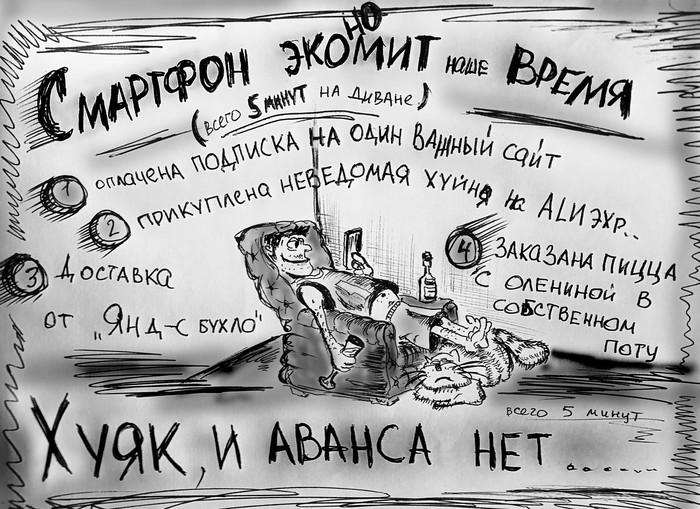 СМАРТФОН ЭКОНОМИТ наше ВРЕМЯ
(всего 5 минут на диване!)
1 оплачена подписка на один важный сайт
2 прикуплена неведомая хуйня на ALIЭХР..
3 Доставка
от "Янд-с бухло"
4 Заказана пицца
с олениной в
собственном
поту
всего 5 минут
Хуяк, и аванса нет........